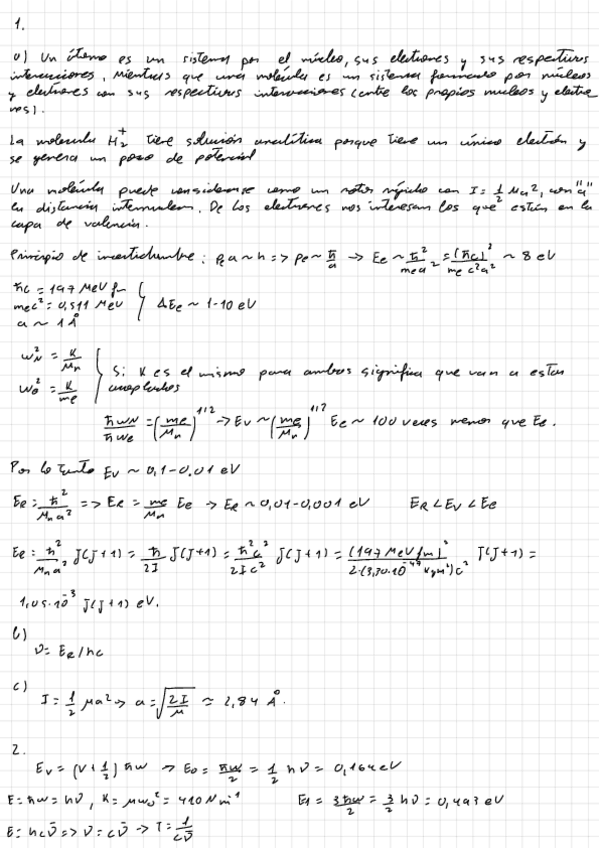 1.
a) Un átomo es un sistema por el núcleo, sus electrones y sus respectivas
interacciones, mientras que una molécula es un sistema formado por núcleos
y electrones con sus respectivas interacciones (entre los propios nucleos y electro
nes).
La molecula H₂⁺ tiene solución analítica porque tiene un único electrón y
se genera un pozo de potencial
Una molécula puede considerarse como un rotor rígido con I = 1/2 μa², con "a"
la distancia internuclear. De los electrones nos interesan los que están en la
capa de valencia.
Principio de incertidumbre: Pe a ~ ħ => Pe ~ ħ/a → Ee ~ ħ²/me a² = (ħc)²/me c² a² ~ 8 eV
ħc = 197 MeV fm
mec² = 0,511 MeV } ΔEe ~ 1-10 eV
a ~ 1 Å
ωN² = K/μn } Si K es el mismo para ambos significa que van a estar
ωe² = K/me acoplados
ħωN/ħωe = (me/μn)^1/2 → Ev ~ (me/μn)^1/2 Ee ~ 100 veces menor que Ee.
Por lo tanto Ev ~ 0,1-0.01 eV
ER: ħ²/μn a² => ER = me/μn Ee → ER ~ 0,01-0,001 eV ER < Ev < Ee
ER: ħ²/μn a² J(J+1) = ħ/2I J(J+1) = ħ²c²/2Ic² J(J+1) = (197 MeV fm)²/2·(3,30·10⁻⁴⁷ Kg m²)c² J(J+1) =
1,05·10⁻³ J(J+1) eV.
b)
ν = ER/hc
c)
I = 1/2 μa² → a = √(2I/μ) ≈ 2,84 Å.
2.
Ev = (V + 1/2) ħω → E0 = ħω/2 = 1/2 hν = 0,164 eV
E = ħω = hν, K = μω₀² = 410 N m⁻¹ E1 = 3ħω/2 = 3/2 hν = 0,493 eV
E = hcν̄ => ν = cν̄ → T = 1/cν̄